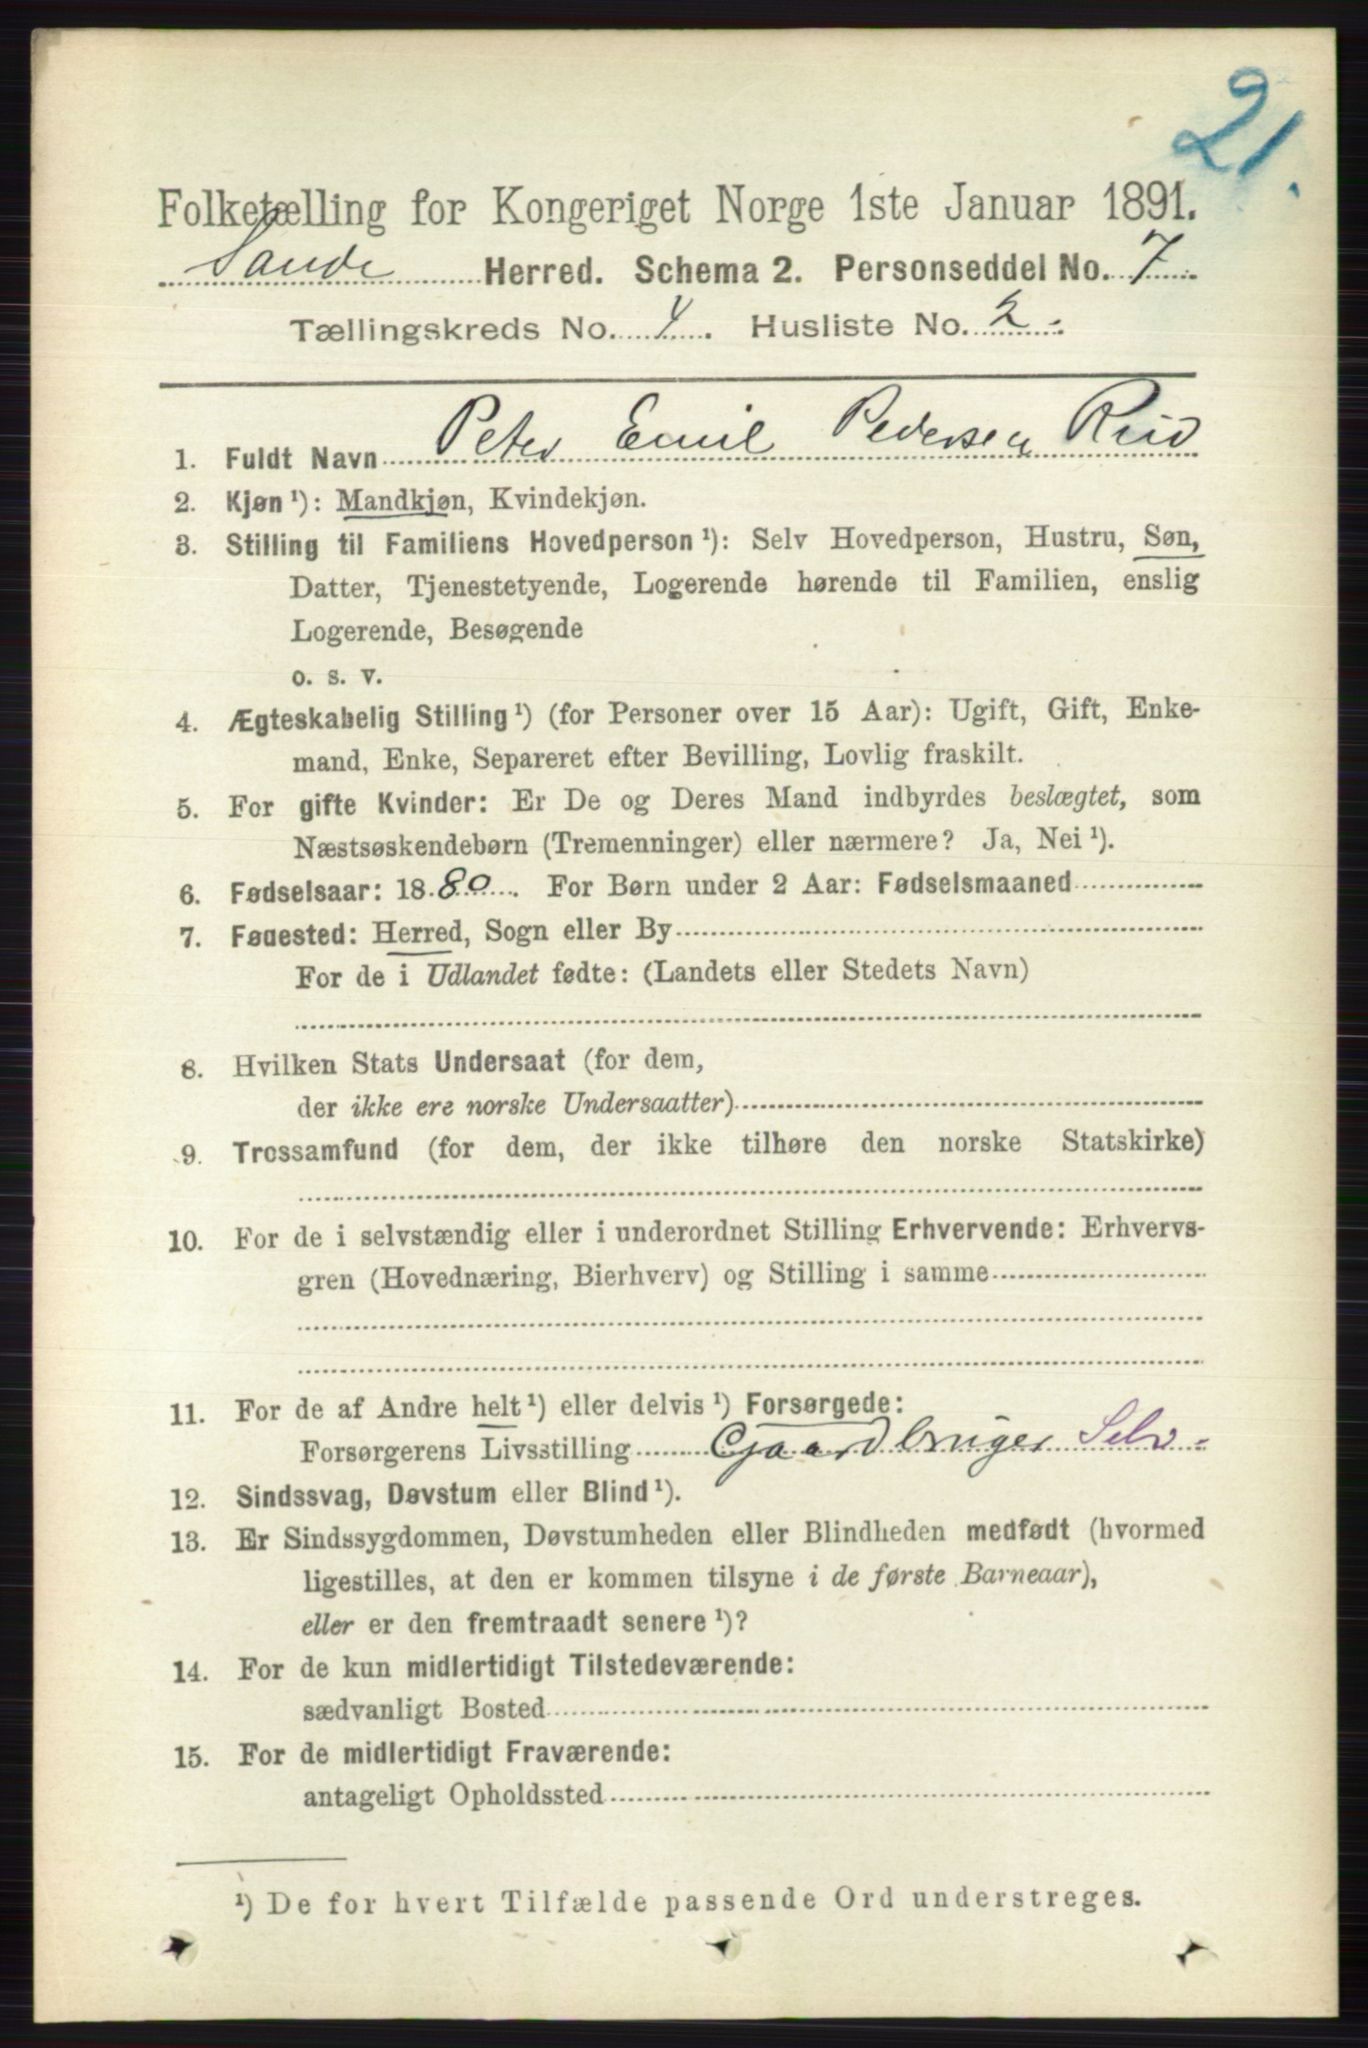 21.
Folketælling for Kongeriget Norge 1ste Januar 1891.
Sande Herred. Schema 2. Personseddel No. 7
Tællingskreds No. 4. Husliste No. 2.
1. Fuldt Navn Peter Emil Pedersen
2. Kjøn ¹): Mandkjøn, Kvindekjøn.
3. Stilling til Familiens Hovedperson ¹): Selv Hovedperson, Hustru, Søn,
Datter, Tjenestetyende, Logerende hørende til Familien, enslig
Logerende, Besøgende
o. s. v.
4. Ægteskabelig Stilling ¹) (for Personer over 15 Aar): Ugift, Gift, Enke-
mand, Enke, Separeret efter Bevilling, Lovlig fraskilt.
5. For gifte Kvinder: Er De og Deres Mand indbyrdes beslægtet, som
Næstsøskendebørn (Tremenninger) eller nærmere? Ja, Nei ¹).
6. Fødselsaar: 1880. For Børn under 2 Aar: Fødselsmaaned
7. Fødested: Herred, Sogn eller By
For de i Udlandet fødte: (Landets eller Stedets Navn)
8. Hvilken Stats Undersaat (for dem,
der ikke ere norske Undersaatter)
9. Trossamfund (for dem, der ikke tilhøre den norske Statskirke)
10. For de i selvstændig eller i underordnet Stilling Erhvervende: Erhvervs-
gren (Hovednæring, Bierhverv) og Stilling i samme
11. For de af Andre helt ¹) eller delvis ¹) Forsørgede:
Forsørgerens Livsstilling Gaardbruger Selv.
12. Sindssvag, Døvstum eller Blind ¹).
13. Er Sindssygdommen, Døvstumheden eller Blindheden medfødt (hvormed
ligestilles, at den er kommen tilsyne i de første Barneaar),
eller er den fremtraadt senere ¹)?
14. For de kun midlertidigt Tilstedeværende:
sædvanligt Bosted
15. For de midlertidigt Fraværende:
antageligt Opholdssted
¹) De for hvert Tilfælde passende Ord understreges.